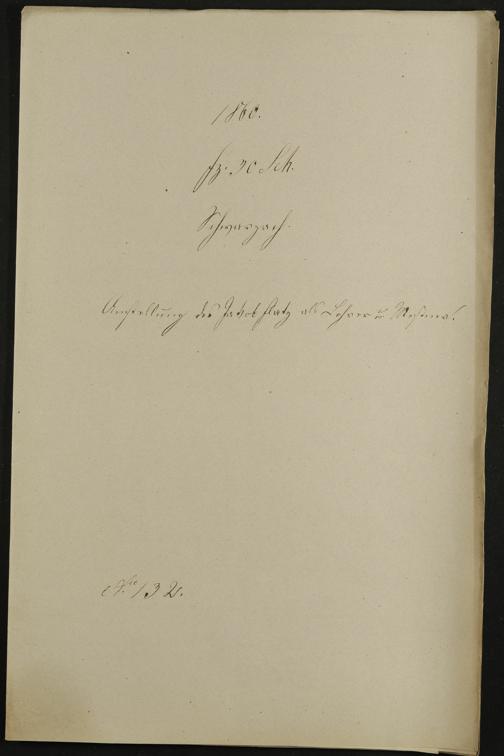 1860.
fz. 30 Sch.
Schwarzach.
Anstellung des Jakob Flatz als Lehrer u. Messner.
No 132.